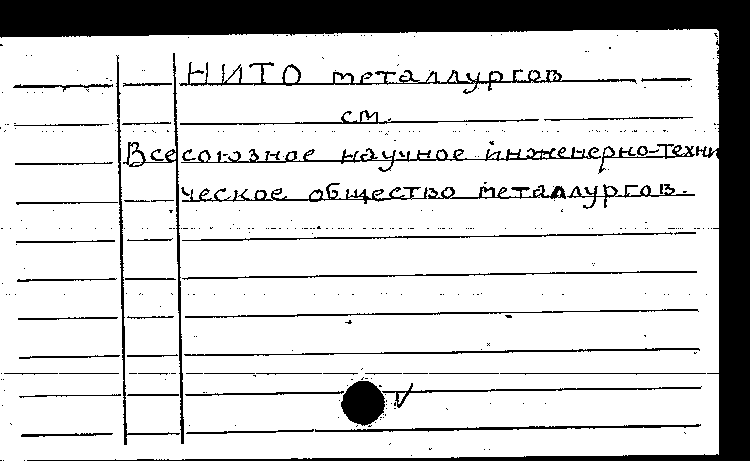 НИТО металлургов
см.
Всесоюзное научное инженерно-техни
ческое общество металлургов.